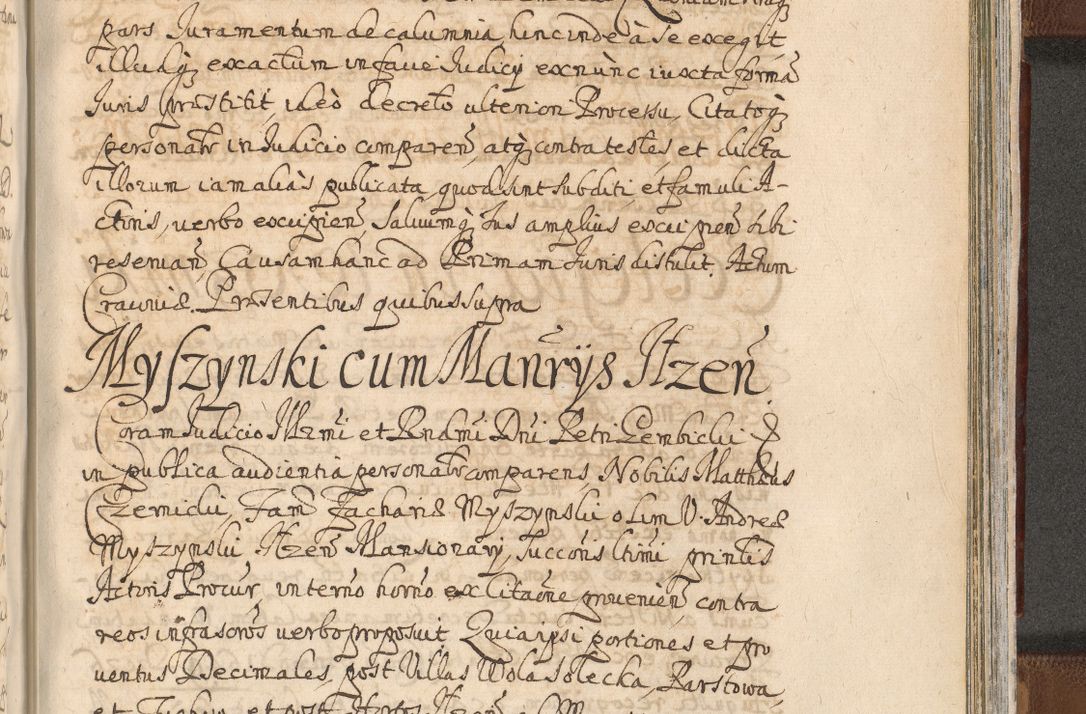 pars Juramentum de calumnia hinc inde à se exegit
illudq; exactum in faue Judicij ex nunc iuxta formã
Juris præstitit, ideò decreto ulteriori Processu, Citatoq;
personalr in Judicio comparen̄, atq; contra testes et dicta
illorum iam aliàs publicata, quod sint subditi, et famuli A-
ctoris, uerbo excipien̄ saluumq; Jus amplius excipien̄ sibi
reseruan̄, Causam hanc ad Primam Juris distulit. Actum
Crauviæ. Præsentibus quibus supra
Myszynski cum Manrÿs Ilzen̄.
Coram Judicio Illmi et Rndmi Dni Petri Gembicki E
in publica audientia personalr comparens, Nobilis Matthæus
Czernicki, Fam̄ Zachariæ Myszynski olim V. Andreæ
Myszynski Ilzen̄ Mansionarij, Succoris ltimi printis
Actoris Procur, in termo horno ex Citaõne prouenien̄ contra
reos infrascros uerbo proposuit. Quia ipsi portiones et pro
uentus Decimales, post Villas Wola Solecka, Parstowa